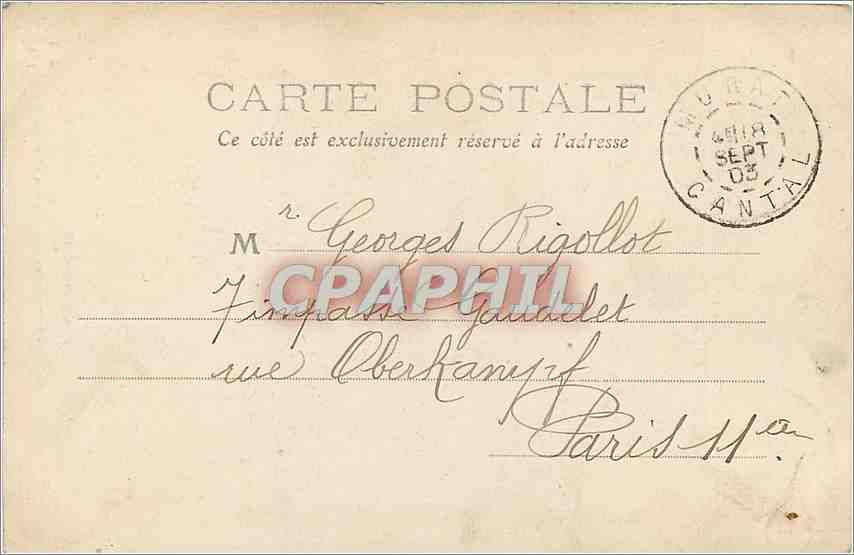 CARTE POSTALE
Ce côté est exclusivement réservé à l'adresse
MURAT
18
SEPT
03
CANTAL
Mr. Georges Rigollot
CPAPHIL
7 impasse Gaudelet
rue Oberkampf
Paris 11ème